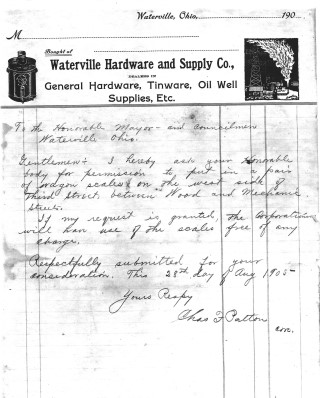 Waterville, Ohio, 190
M
Bought of
Waterville Hardware and Supply Co.,
DEALERS IN
General Hardware, Tinware, Oil Well
Supplies, Etc.
To the Honorable Mayor and Councilmen
Waterville Ohio.
Gentlemen: I hereby ask your Honorable
body for permission to put in a pair
of wagon scales on the west side
Third Street between Wood and Mechanic
Streets.
If my request is granted, the Corporation
will have use of the scales free of any
charge.
Respectfully submitted for your
consideration. This 28th day of Aug 1905
Yours Respy
Chas F Patton